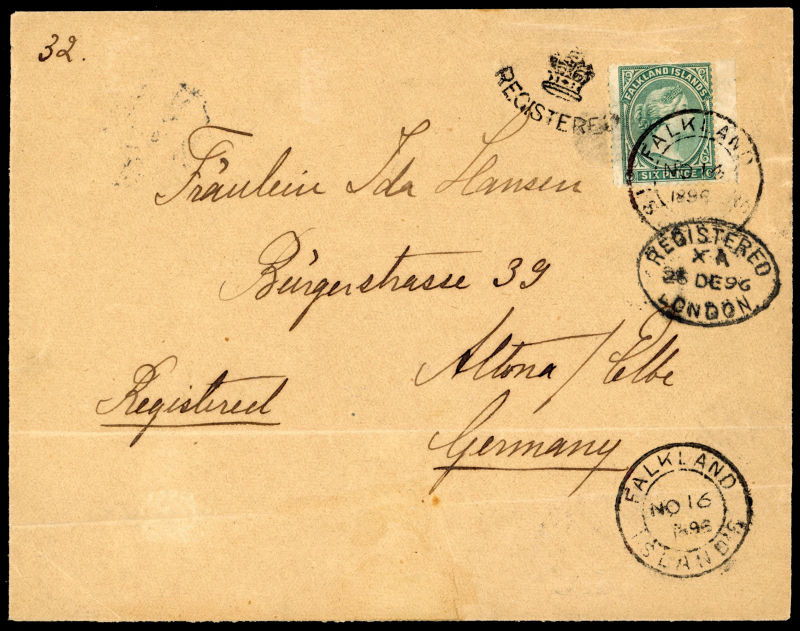 32.
REGISTERED
FALKLAND ISLANDS
SIX PENCE
FALKLAND
NO 16
1896
REGISTERED
X A
26 DE 96
LONDON
Fräulein Ida Hansen
Bürgerstrasse 39
Altona/Elbe
Germany
Registered
FALKLAND ISLANDS
NO 16
1896